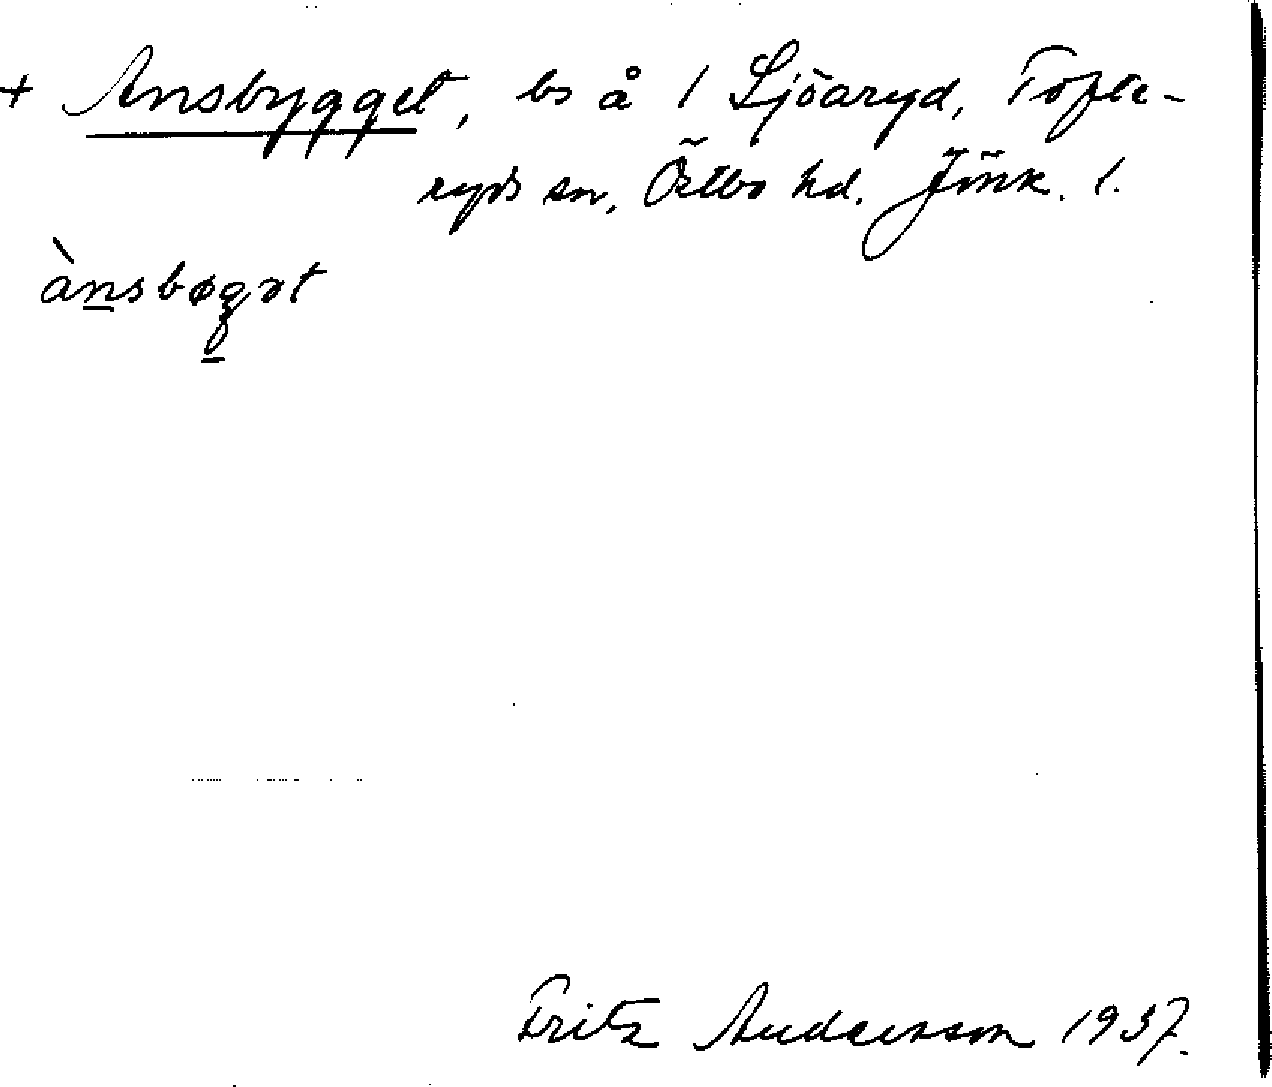 + Ansbygget, bs å 1 Sjöaryd, Tofte-
ryds sn, Östbo hd. Jönk. l.
ànsbøgət
Fritz Andersson 1937.